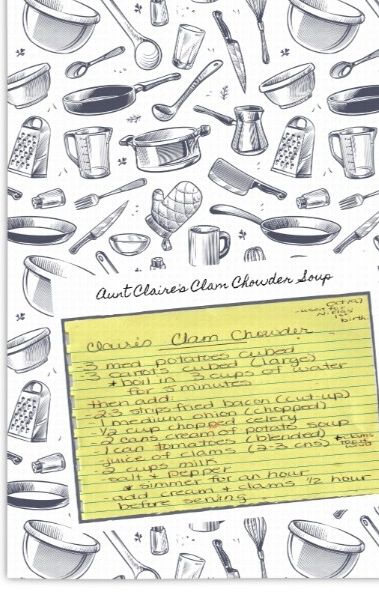 Aunt Claire's Clam Chowder Soup
Oct 1997
1st
birth.
Claire's Clam Chowder
-3 med potatoes cubed
-3 carrots cubed (large)
* boil in 3 cups of water
for 5 minutes
then add
-2-3 strips fried bacon (cut up)
-1 medium onion (chopped)
-1/2 cup chopped celery
-2 cans cream of potato soup
-1 can tomatoes (blended)
juice of clams (2-3 cns)
*clams
3 cups milk
salt + pepper
* simmer for an hour
-add cream + clams 1/2 hour
before serving